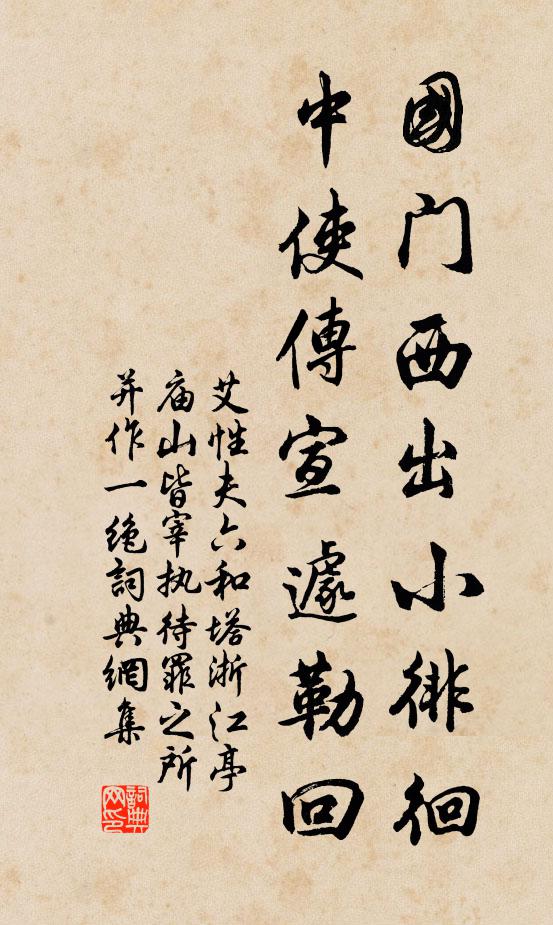 國门西出小徘徊
中使傳宣遽勒回
艾性夫六和塔浙江亭
庙山皆宰执待罪之所
并作一绝詞典網集
詞典网印